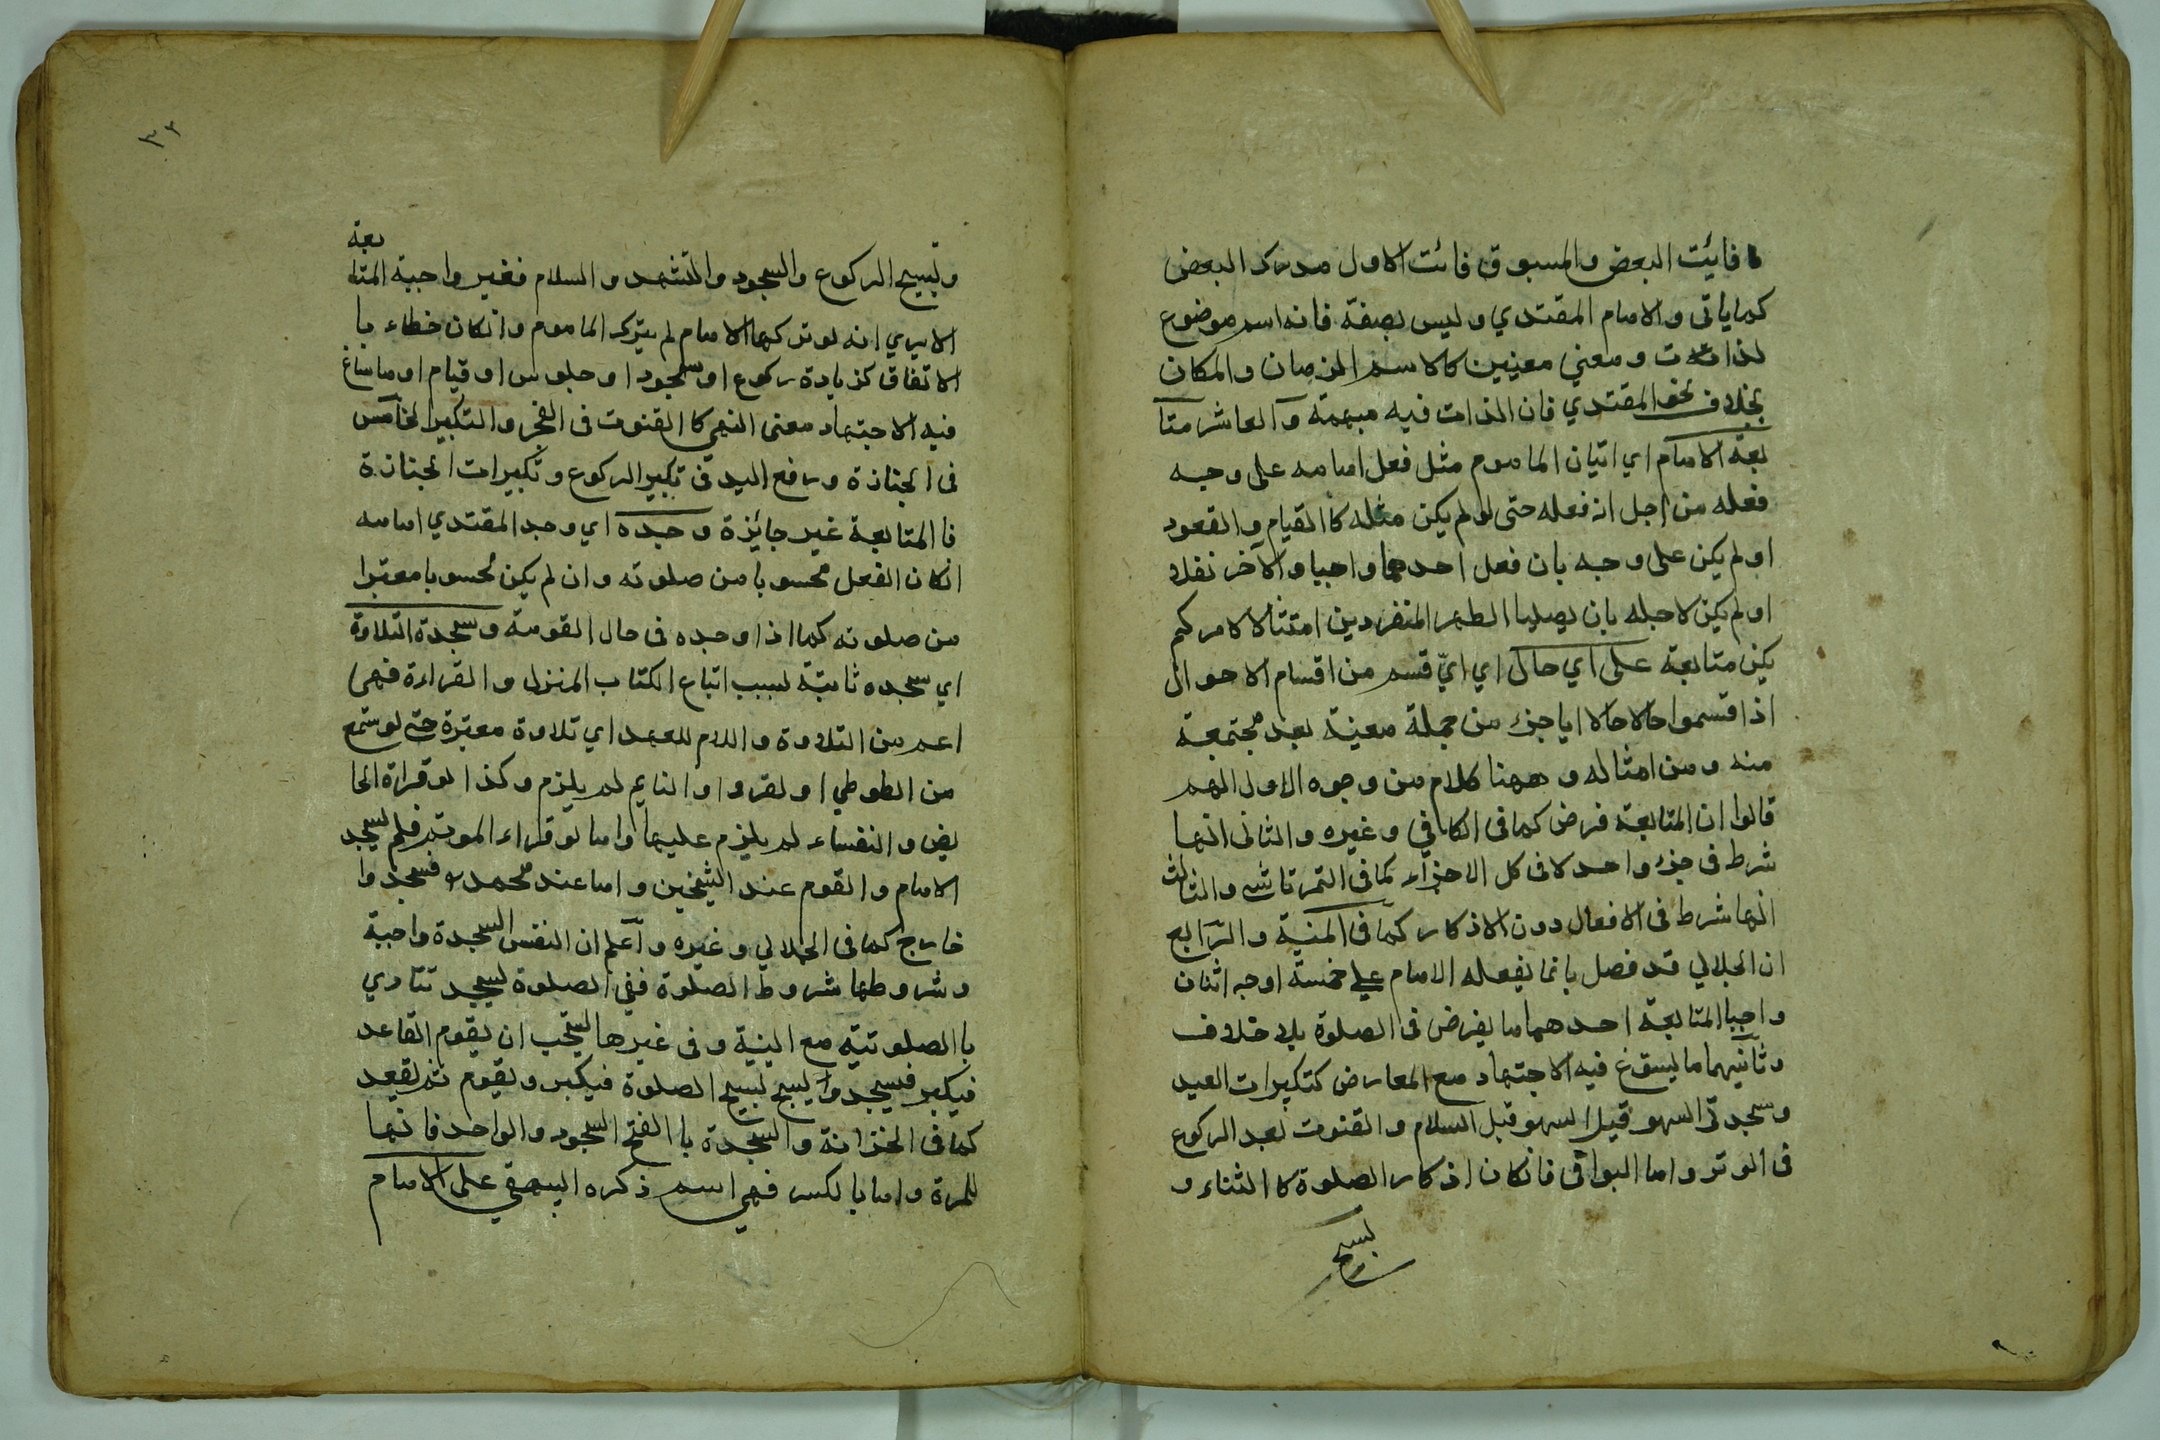 فائيت البعض والمسبوق فائت الاول مدرك البعض
كما ياتى والامام المقتدي وليس بصفة فانه اسم موضوع
لذات ومعني معينين كالاسم الزمان والمكان
بخلاف نحو المقتدي فان الذات فيه مبهمة والعاشر متا
بعة الامام اي اتيان الماموم مثل فعل امامه على وجه
فعله من اجل انه فعله حتى لو لم يكن مثله كا القيام والقعود
او لم يكن على وجه بان فعل احدهما واجبا والآخر نفلا
او لم يكن لاجله بان يصليا الظهر المنفردين امتثالا لامر كم
يكن متابعة على اي حال اي ايّ قسم من اقسام الاحوال
اذا قسموا حالا حالا ايا جزء من جملة معينة بعد مجتمعة
منه ومن امثاله وههنا كلام من وجوه الاول الهم
قالوا ان المتابعة فرض كما فى الكافي وغيره والثانى انها
شرط فى جزء واحد لا فى كل الاجزآء كما فى التمرتاشى والثالث
انها شرط فى الافعال دون الاذكار كما فى المنية والرابع
ان الجلالي قد فصل بانما يفعله الامام على خمسة اوجه اثنان
واجبا المتابعة احدهما ما يفرض فى الصلوة بلا خلاف
وثانيهما ما ليسوغ فيه الاجتهاد مع المعارض كتكبرات العيد
وسجدتى السهو قبل السهو قبل السلام والقنوت بعد الركوع
فى الوتر واما البواقى فانكان اذكار الصلوة كا الثناء و
تسبيح
٣٢
وتسبيح الركوع والسجود والتشهد والسلام فغير واجبة المتا
بعة
الا يري انه لو تركها الامام لم يترك الماموم وانكان خطاء با
الاتفاق كزيادة ركوع او سجود او جلوس او قيام او ما ساغ
فيه الاجتهاد معنى النهي كا القنوت فى الفجر والتكبير الخامس
فى الجنازة ورفع اليد فى تكبير الركوع وتكبيرات الجنازة
فا المتابعة غير جائزة وجده اي وجد المقتدي امامه
انكان الفعل محسوبا من صلوته وان لم يكن محسوبا معتبرا
من صلوته كما اذا وجده فى حال القومة وسجدة التلاوة
اي سجده ثابتة لسبب اتباع الكتاب المنزل والقراءة فهى
اعم من التلاوة واللام للعهد اي تلاوة معتبرة حتى لو سمع
من الطوطي او لقرو او النايم لم يلزم وكذا لو قراة الحا
يض والنفساء لم يلزم عليها واما لو قراء الموتم فلم يسجد
الامام والقوم عند الشيخين واما عند محمد فسجدوا
خارج كما فى الجلالي وغيره واعلم ان النفس السجدة واجبة
وشروطها شروط الصلوة ففى الصلوة ليسجد تتادي
با الصلوتية مع النية وفى غيرها ليستحب ان يقوم القاعد
فيكبر فيسجد واليسبح لتسبيح الصلوة فيكبر ويقوم ثم يقعد
كما فى الخزانة والسجدة با الفتح السجود والواحد فانها
للمرة واما با لكسر فهي اسم ذكره البيهقي على الامام